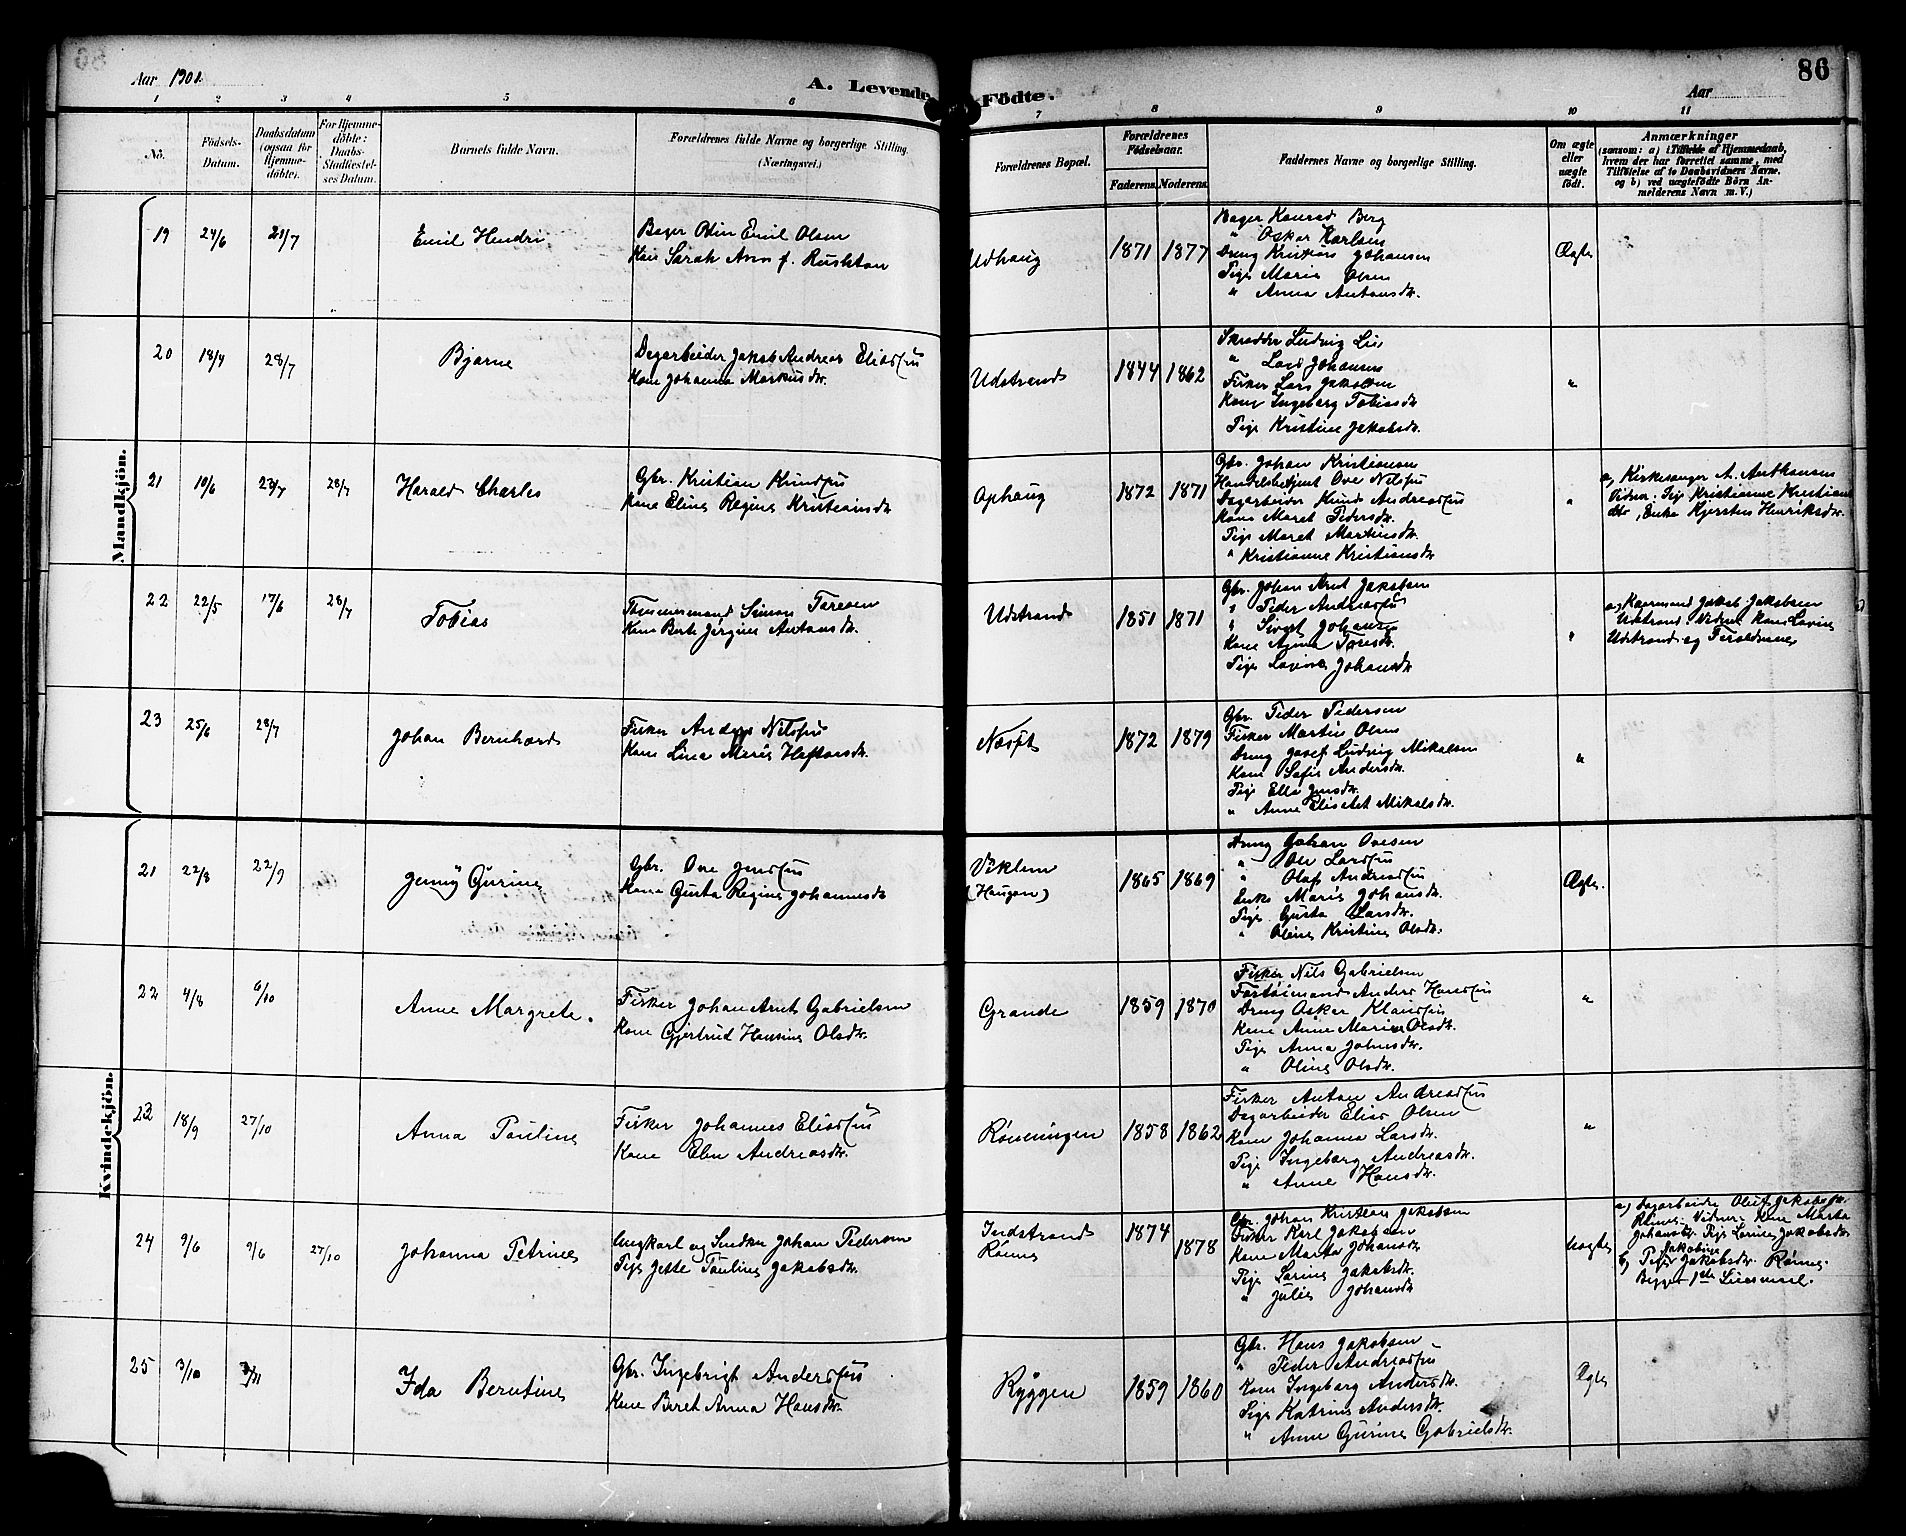 86
Aar 1901.
A. Levende Födte.
Aar
1 2 3 4 5 6 7 8 9 10 11
No.
Födsels-Datum.
Daabsdatum (ogsaa for Hjemme-döbte).
For Hjemme-döbte: Daabs-Stadfæstel-ses Datum.
Barnets fulde Navn.
Forældrenes fulde Navne og borgerlige Stilling. (Næringsvei.)
Forældrenes Bopæl.
Forældrenes Födselsaar.
Faderens. Moderens.
Faddernes Navne og borgerlige Stilling.
Om ægte eller uægte födt.
Anmærkninger
(saasom: a) i Tilfælde af Hjemmedaab,
hvem der har forrettet samme, med
Tilföielse af to Daabsvidners Navne,
og b) ved uægtefödte Börn An-
melderens Navn m. V.)
Mandkjön.
19 24/6 21/7 Emil Hendri
Bager Odin Emil Olsen
Kone Sarah Ann f. Rushton
Udhaug 1871 1877
Bager Konrad Berg
" Oskar Karlsen
Dreng Kristian Johansen
Pige Marie Olsen
" Anna Antonsdtr.
Ægte
20 18/4 28/7 Bjarne
Dagarbeider Jakob Andreas Eliassen
Kone Johanna Markusdtr.
Udstrand 1844 1862
Skrædder Ludvig Lie
" Lars Johansen
Fisker Lars Jakobsen
Kone Ingeborg Tobiasdtr
Pige Kristine Jakobsdtr.
"
21 10/6 23/7 28/7 Harald Charles
Gbr. Kristian Knudsen
Kone Eline Regine Kristiansdtr
Ophaug 1872 1871
Gbr. Johan Kristiansen
Handelsbetjent Ove Nilssen
Dagarbeider Knud Andreassen
Kone Maret Pedersdtr.
Pige Maret Martinsdtr.
" Kristianne Kristiansdtr
"
a) Kirkesanger A. Anthonsen
Vidner: Pige Kristianne Kristians
dtr, Enke Kjersten Henriksdtr.
22 22/5 17/6 28/7 Tobias
Tømmermand Simon Taresen
Kone Berte Jørgine Antonsdtr.
Udstrand 1851 1871
Gbr. Johan Arnt Jakobsen
" Peder Andreassen
" Sivert Johansen
Kone Agnna Taresdtr.
Pige Lovise Johansdtr
"
a) Kaarmand Jakob Jakobsen
Udstrand Vidner Kone Lovise
Udstrand og Forældrene
23 25/6 28/7 Johan Bernhard
Fisker Anders Nilssen
Kone Lina Marie Haftorsdtr.
Næsset 1872 1879
Gbr. Peder Pedersen
Fisker Martin Olsen
Dreng Josef Ludvig Mikalsen
Kone Sofie Andersdtr.
Pige Ella Jensdtr.
" Anne Elisabet Mikalsdtr.
"
Kvindekjön.
21 22/8 22/9 Jenny Gurine
Gbr. Ove Jenssen
Kone Gusta Regine Johannesdtr
Viklem
(Haugen) 1865 1869
Dreng Johan Ovesen
" Ole Larssen
" Olaf Andreassen
Enke Marie Johansdtr.
Pige Gusta Larsdtr.
" Oline Kristine Olsdtr.
Ægte.
22 4/8 6/10 Anne Margrete.
Fisker Johan Arnt Gabrielsen
Kone Gjertrud Hansine Olsdtr.
Grande 1859 1870
Fisker Nils Gabrielsen
Fartøimand Anders Hanssen
Dreng Oskar Klaussen
Kone Anne Marie Olsdtr.
Pige Anna Johnsdtr.
" Oline Olsdtr.
"
23 18/9 27/10 Anna Pauline
Fisker Johannes Eliassen
Kone Elen Andreasdtr.
Rønningen 1858 1862
Fisker Anton Andreassen
Dagarbeider Elias Olsen
Kone Johanna Larsdtr.
Pige Ingeborg Andreasdtr.
" Anne Hansdtr.
"
24 9/6 9/6 27/10 Johanna Petrine
Ungkarl og Snedker Johan Pedersen
Pige Jette Pauline Jakobsdtr.
Indstrand
Rønne 1874 1878
Gbr. Johan Kristian Jakobsen
Fisker Karl Jakobsen
Kone Marta Johansdtr
Pige Larine Jakobsdtr.
" Julie Johansdtr
Uægte
a) Dagarbeider Oluf Jakobsen
Rønne. Vidner: Kone Marta
Johansdtr. Pige Larine Jakobsdtr
b) Pige Jakobine Jakobsdtr. Rønne.
Begges 1ste Leiermaal.
25 3/10 3/11 Ida Berntine
Gbr. Ingebrigt Anderssen
Kone Beret Anna Hansdtr.
Ryggen 1859 1860
Gbr. Hans Jakobsen
" Peder Andreassen
Kone Ingeborg Andersdtr.
Pige Katrine Andersdtr.
" Anne Gurine Gabrielsdtr.
Ægte